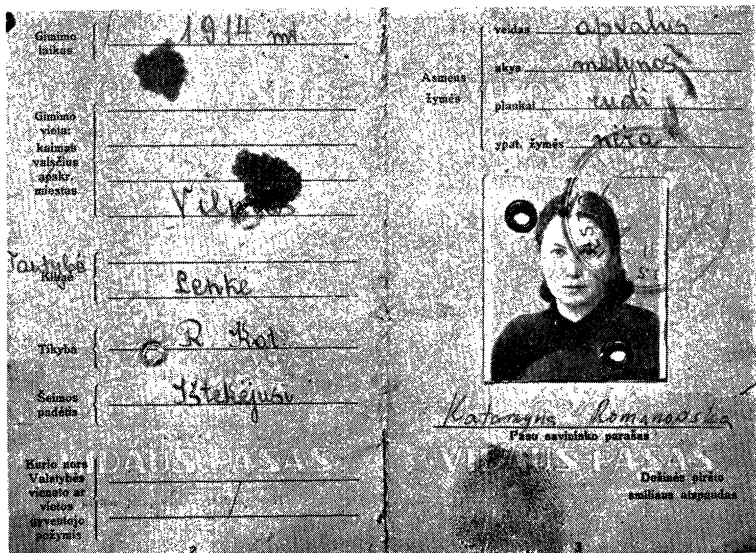 Gimimo
laikas
1914 m
Gimimo
vieta:
kaimas
valsčius
apskr.
miestas
Vilnius
Tautybė
Kilmė
Lenkė
Tikyba
R. Kat.
Šeimos
padėtis
Ištekėjusi
Kurio nors
Valstybės
vieneto ar
vietos
gyventojo
požymis
VIDAUS PASAS
2
Asmens
žymės
veidas apvalus
akys mėlynos
plaukai rudi
ypat. žymės nėra
Katarzyna Romanowska
Paso savininko parašas
VIDAUS PASAS
Dešinės piršto
smiliaus atspaudas
3